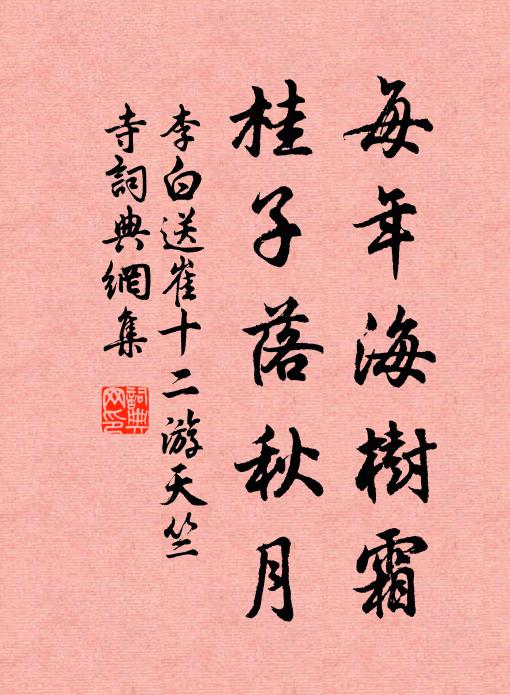 每年海樹霜
桂子落秋月
李白送崔十二游天竺
寺詞典網集
詞典
网印